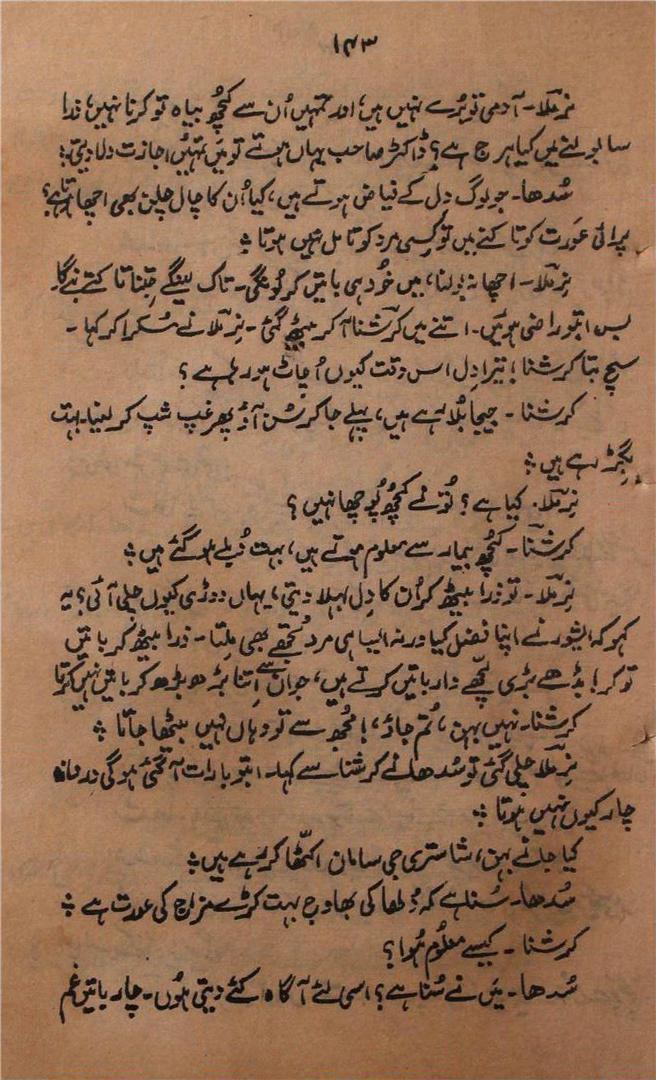 ۱۴۳
نرملا۔ آدمی تو بُرے نہیں ہیں، اور تمہیں اُن سے کچھ بیاہ تو کرنا نہیں، ذرا
سا بولنے میں کیا ہرج ہے؟ ڈاکٹر صاحب یہاں ہوتے تو میں تمہیں اجازت دلا دیتی؛
سُدھا۔ جو لوگ دل کے فیاض ہوتے ہیں، کیا اُن کا چال چلن بھی اچھا ہوتا ہے؟
پرائی عورت کو تاکنے میں تو کسی مرد کو تامل نہیں ہوتا ؛
نرملا۔ اچھا نہ بولنا، میں خُود ہی باتیں کر لُونگی۔ تاک لینگے جتنا تاکتے بنے گا
بس اب تو راضی ہوئیں۔ اتنے میں کرشنا آ کر بیٹھ گئی۔ نرملا نے مُسکرا کر کہا۔
سچ بتا کرشنا! تیرا دل اس وقت کیوں اُچاٹ ہو رہا ہے ؟
کرشنا۔ جیجا بُلا رہے ہیں، پہلے جا کر سُن آؤ پھر غپ شپ کر لینا۔ بہت
بگڑ رہے ہیں ؛
نرملا۔ کیا ہے؟ تُو نے کچھ پُوچھا نہیں ؟
کرشنا۔ کچھ بیمار سے معلوم ہوتے ہیں، بہت دُبلے ہو گئے ہیں ؛
نرملا۔ تو ذرا بیٹھ کر اُن کا دل بہلا دیتی، یہاں دوڑی کیوں چلی آئی؟ یہ
کہو کہ ایشور نے اپنا فضل کیا ورنہ ایسا ہی مرد تجھے بھی ملتا۔ ذرا بیٹھ کر باتیں
تو کر! بڈھے بڑی لچھے دار باتیں کرتے ہیں، جوان سے اتنا بڑھ بڑھ کر باتیں نہیں کرتا
کرشنا۔ نہیں بہن، تُم جاؤ،! مُجھ سے تو وہاں نہیں بیٹھا جاتا ؛
نرملا چلی گئی تو سُدھا نے کرشنا سے کہا۔ اب تو بارات آ گئی ہو گی دروازہ
چار کیوں نہیں ہوتا ؛
کیا جانے بہن، شاستری جی سامان اکٹھا کر رہے ہیں ؛
سُدھا۔ سُنا ہے کہ دُلھا کی بھاوج بہت کڑے مزاج کی عورت ہے ؛
کرشنا۔ کیسے معلُوم ہُوا؟
سُدھا۔ میں نے سُنا ہے؟ اسی لئے آگاہ کئے دیتی ہُوں۔ چار باتیں غم